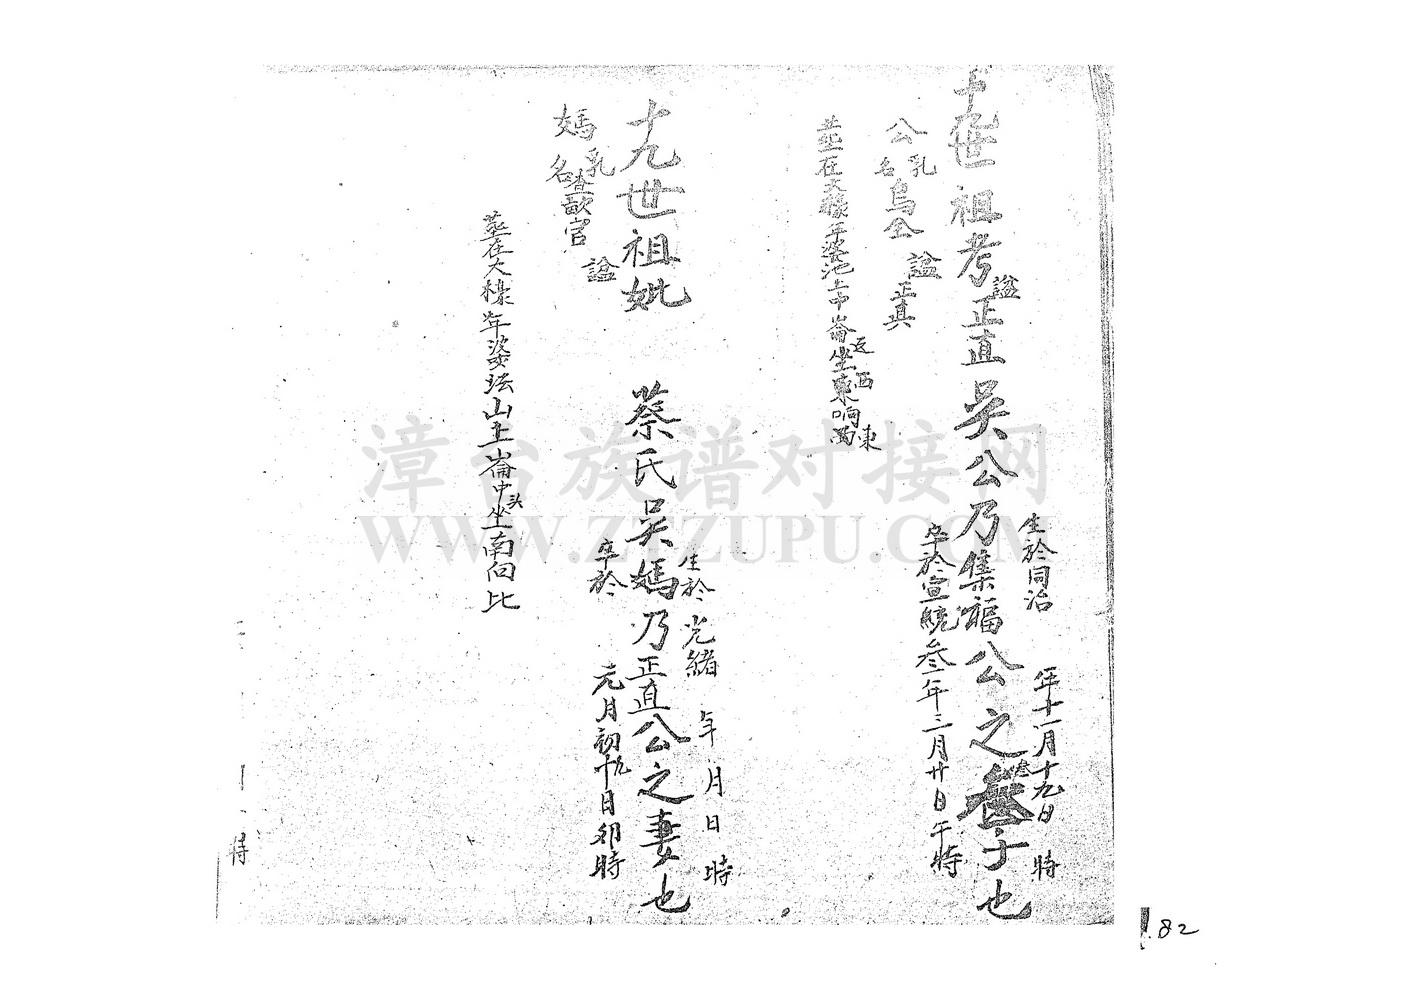 十九世祖考諡正直吳公乃集福公之叁子也
生於同治 年十一月十九日 時
卒於宣統叁年三月廿日午時
公乳名烏全 諡正真
塟在大檺年婆池上中崙坐東响西
辽西 東
十九世祖妣 蔡氏吳媽乃正直公之妻也
生於光緒 年月日時
卒於 元月初十九日卯時
媽乳名查歆官 諡
塟在大檺年婆坛山上崙中头坐南向北
時
漳台族谱对接网
WWW.ZTZUPU.COM
82